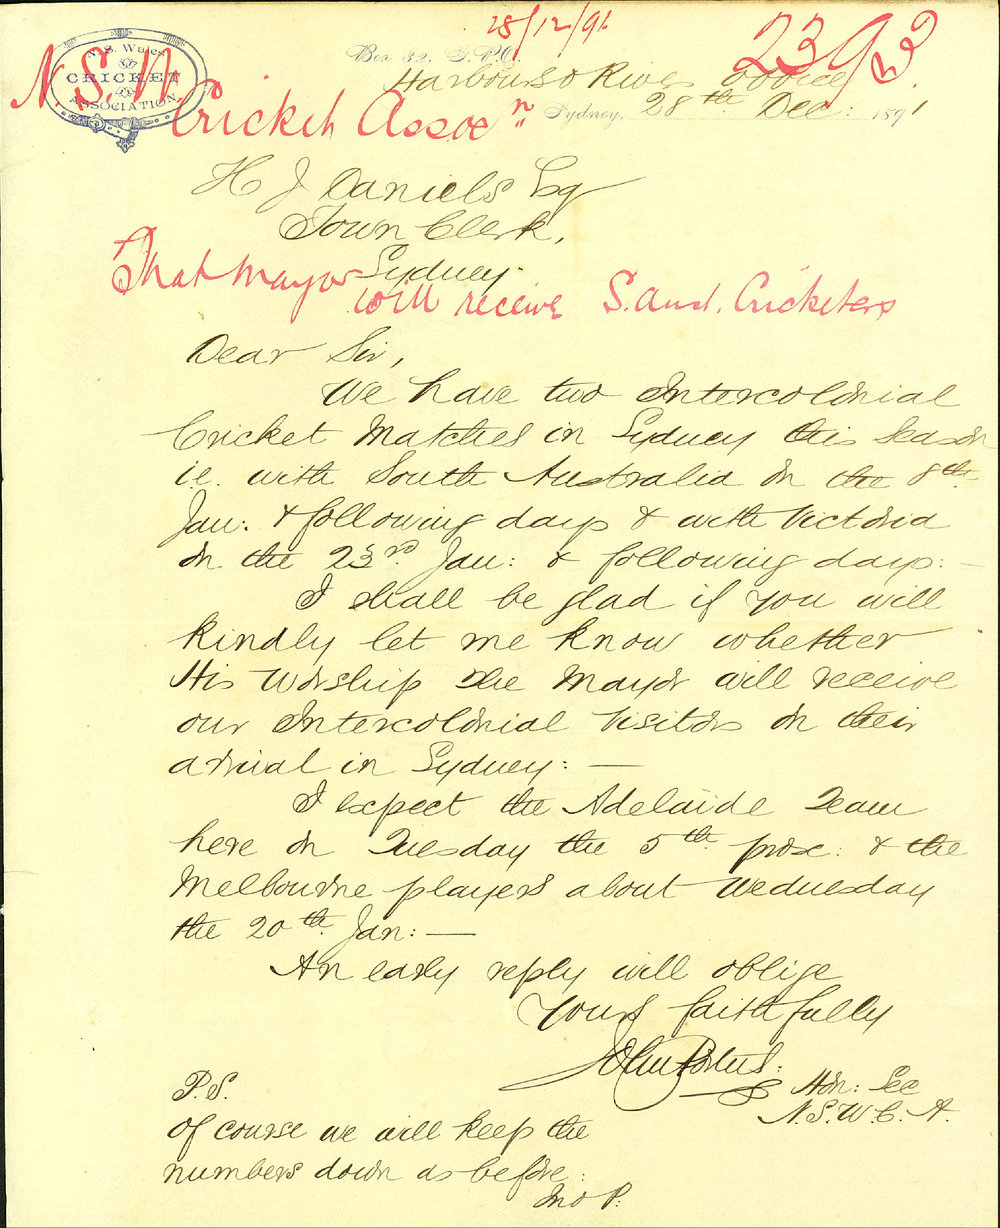 28/12/91
2392
N. S. Wales
CRICKET
ASSOCIATION
N.S.W
Cricket Assocn
Box 32, G.P.O.
Harbours & Rivers Office
Sydney, 28th Dec: 1891
H J Daniels Esq
Town Clerk,
Sydney.
That Mayor
will receive S. Aust. Cricketers
Dear Sir,
We have two Intercolonial
Cricket Matches in Sydney this Season
i.e. with South Australia on the 8th
Jan: & following days & with Victoria
on the 23rd Jan: & following days: —
I shall be glad if you will
kindly let me know whether
His Worship the Mayor will receive
our Intercolonial Visitors on their
arrival in Sydney: —
I expect the Adelaide Team
here on Tuesday the 5th prox: & the
Melbourne players about Wednesday
the 20th Jan: —
An early reply will oblige
Yours faithfully
John Portus.
Hon: Sec
N.S.W.C.A.
P.S.
Of course we will keep the
numbers down as before:
Jno P: